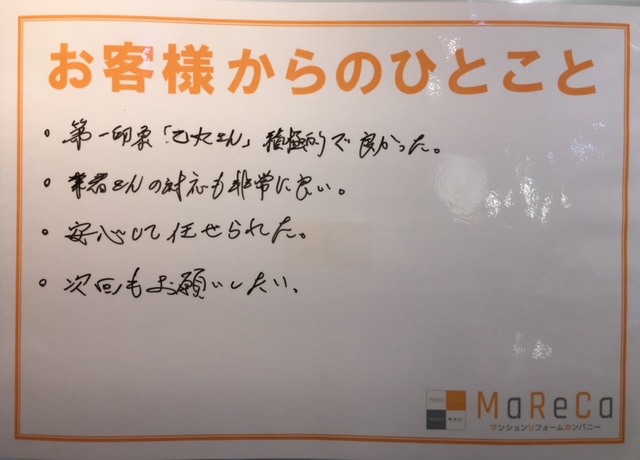 お客様からのひとこと
・第一印象「乙丸さん」積極的で良かった。
・業者さんの対応も非常に良い。
・安心して任せられた。
・次回もお願いしたい。
MaReCa
マンションリフォームカンパニー